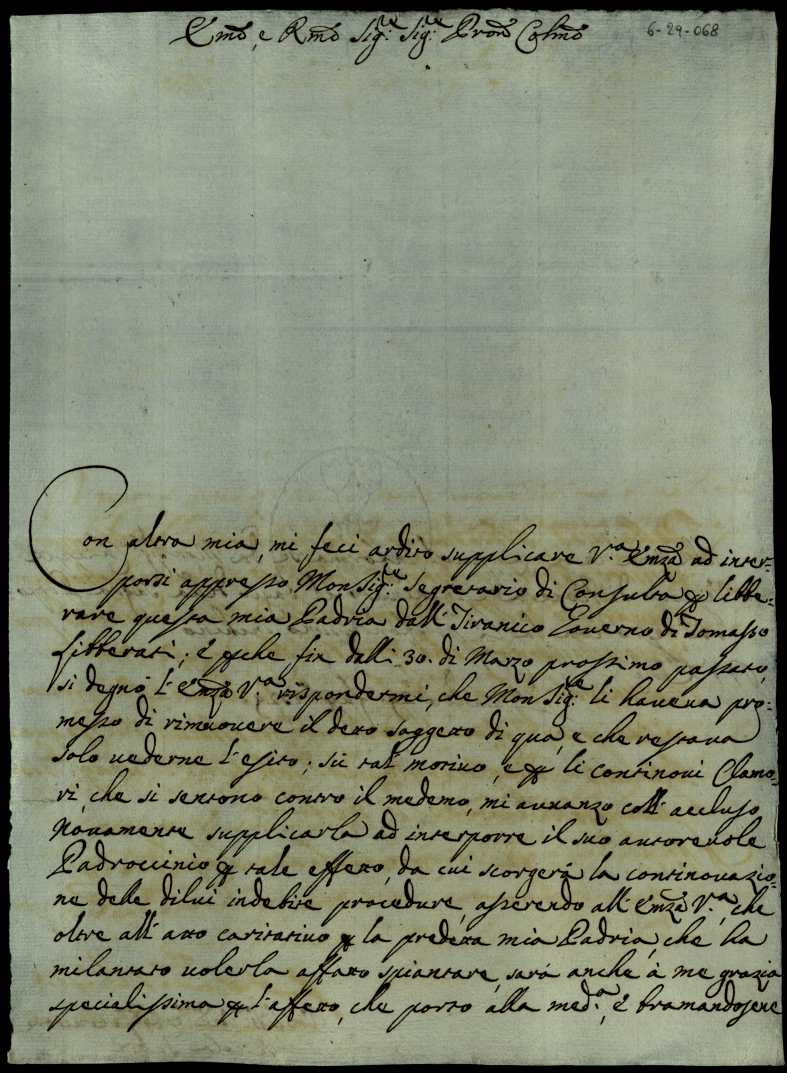 Emo, e Rmo Sig.re Sig.re Pron Colmo
6-29-068
Con altra mia, mi feci ardito supplicare V.a Emza ad inter=
porsi appresso MonSig.re Segretario di Consulta p libbe=
rare questa mia Padria dall' Tiranico Governo di Tomasso
Libberati; è pche fin dalli 30. di Marzo prossimo passato,
si degnò l'Emza V.a rispondermi, che MonSig.re li haveva pro=
messo di rimuovere il detto soggetto di qua, e che restava
solo vederne l'esito; sù tal motivo, e p li continovi Clamo=
ri, che si sentono contro il medemo, mi avvanzo coll' accluso
Novamente supplicarla ad interporre il suo autorevole
Padroccinio p tale effetto, da cui scorgerà la continovazio=
ne delle dilui indebite procedure, asserendo all' Emza V.a, che
oltre all' atto caritativo p la predetta mia Padria, che ha
milantato volerla affatto spiantare, sarà anche à me grazia
specialissima p l'affetto, che porto alla med.a, è bramandosene